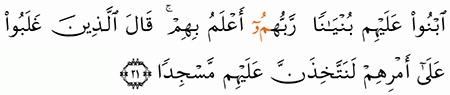 ٱبۡنُواْ عَلَيۡهِم بُنۡيَٰنٗاۖ رَّبُّهُمُۥٓ أَعۡلَمُ بِهِمۡۚ قَالَ ٱلَّذِينَ غَلَبُواْ
عَلَىٰٓ أَمۡرِهِمۡ لَنَتَّخِذَنَّ عَلَيۡهِم مَّسۡجِدٗا ۝٢١